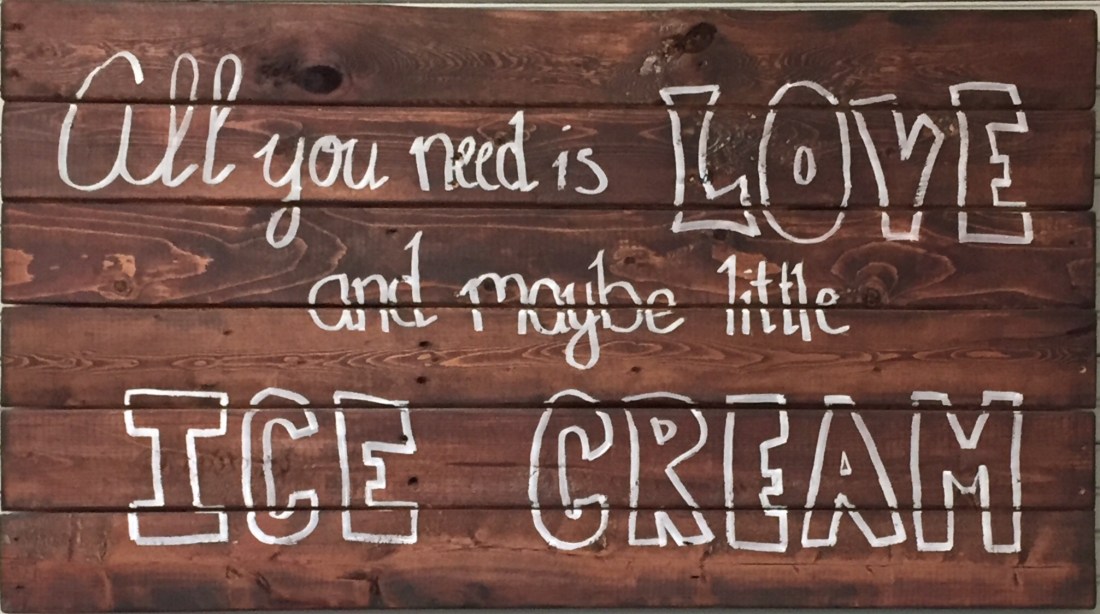 All you need is LOVE
and maybe little
ICE CREAM